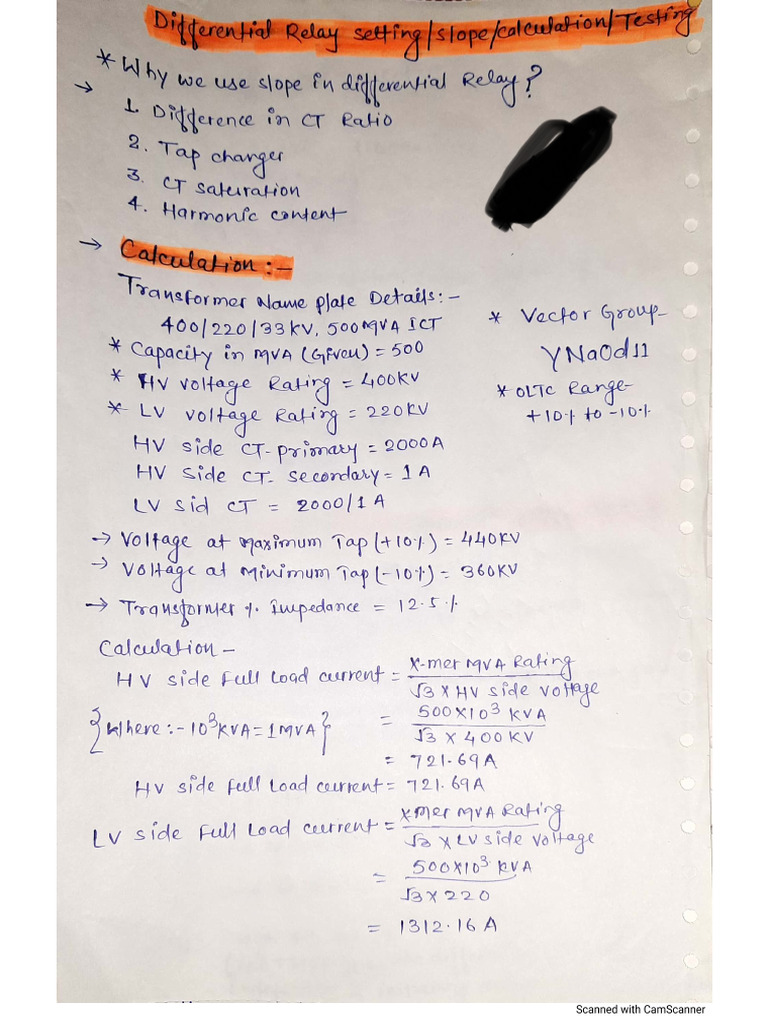 Differential Relay setting/slope/calculation/Testing
* Why we use slope in differential Relay?
→ 1. Difference in CT Ratio
2. Tap changer
3. CT saturation
4. Harmonic content
→ Calculation :-
Transformer Name plate Details:-
400/220/33KV, 500MVA ICT
* Capacity in MVA (Given) = 500
* HV voltage Rating = 400KV
* LV voltage Rating = 220KV
HV side CT-primary = 2000A
HV side CT- secondary = 1A
LV sid CT = 2000/1A
* Vector Group-
YNa0d11
* OLTC Range-
+10% to -10%
→ Voltage at Maximum Tap (+10%) = 440KV
→ Voltage at Minimum Tap (-10%) = 360KV
→ Transformer % Impedance = 12.5%
Calculation -
HV side Full Load current = X-mer MVA Rating
√3 X HV side voltage
{Where:- 10³KVA = 1MVA} = 500X10³ KVA
√3 X 400KV
= 721.69A
HV side Full Load current = 721.69A
LV side Full Load current = X-mer MVA Rating
√3 X LV side voltage
= 500X10³ KVA
√3 X 220
= 1312.16 A
Scanned with CamScanner